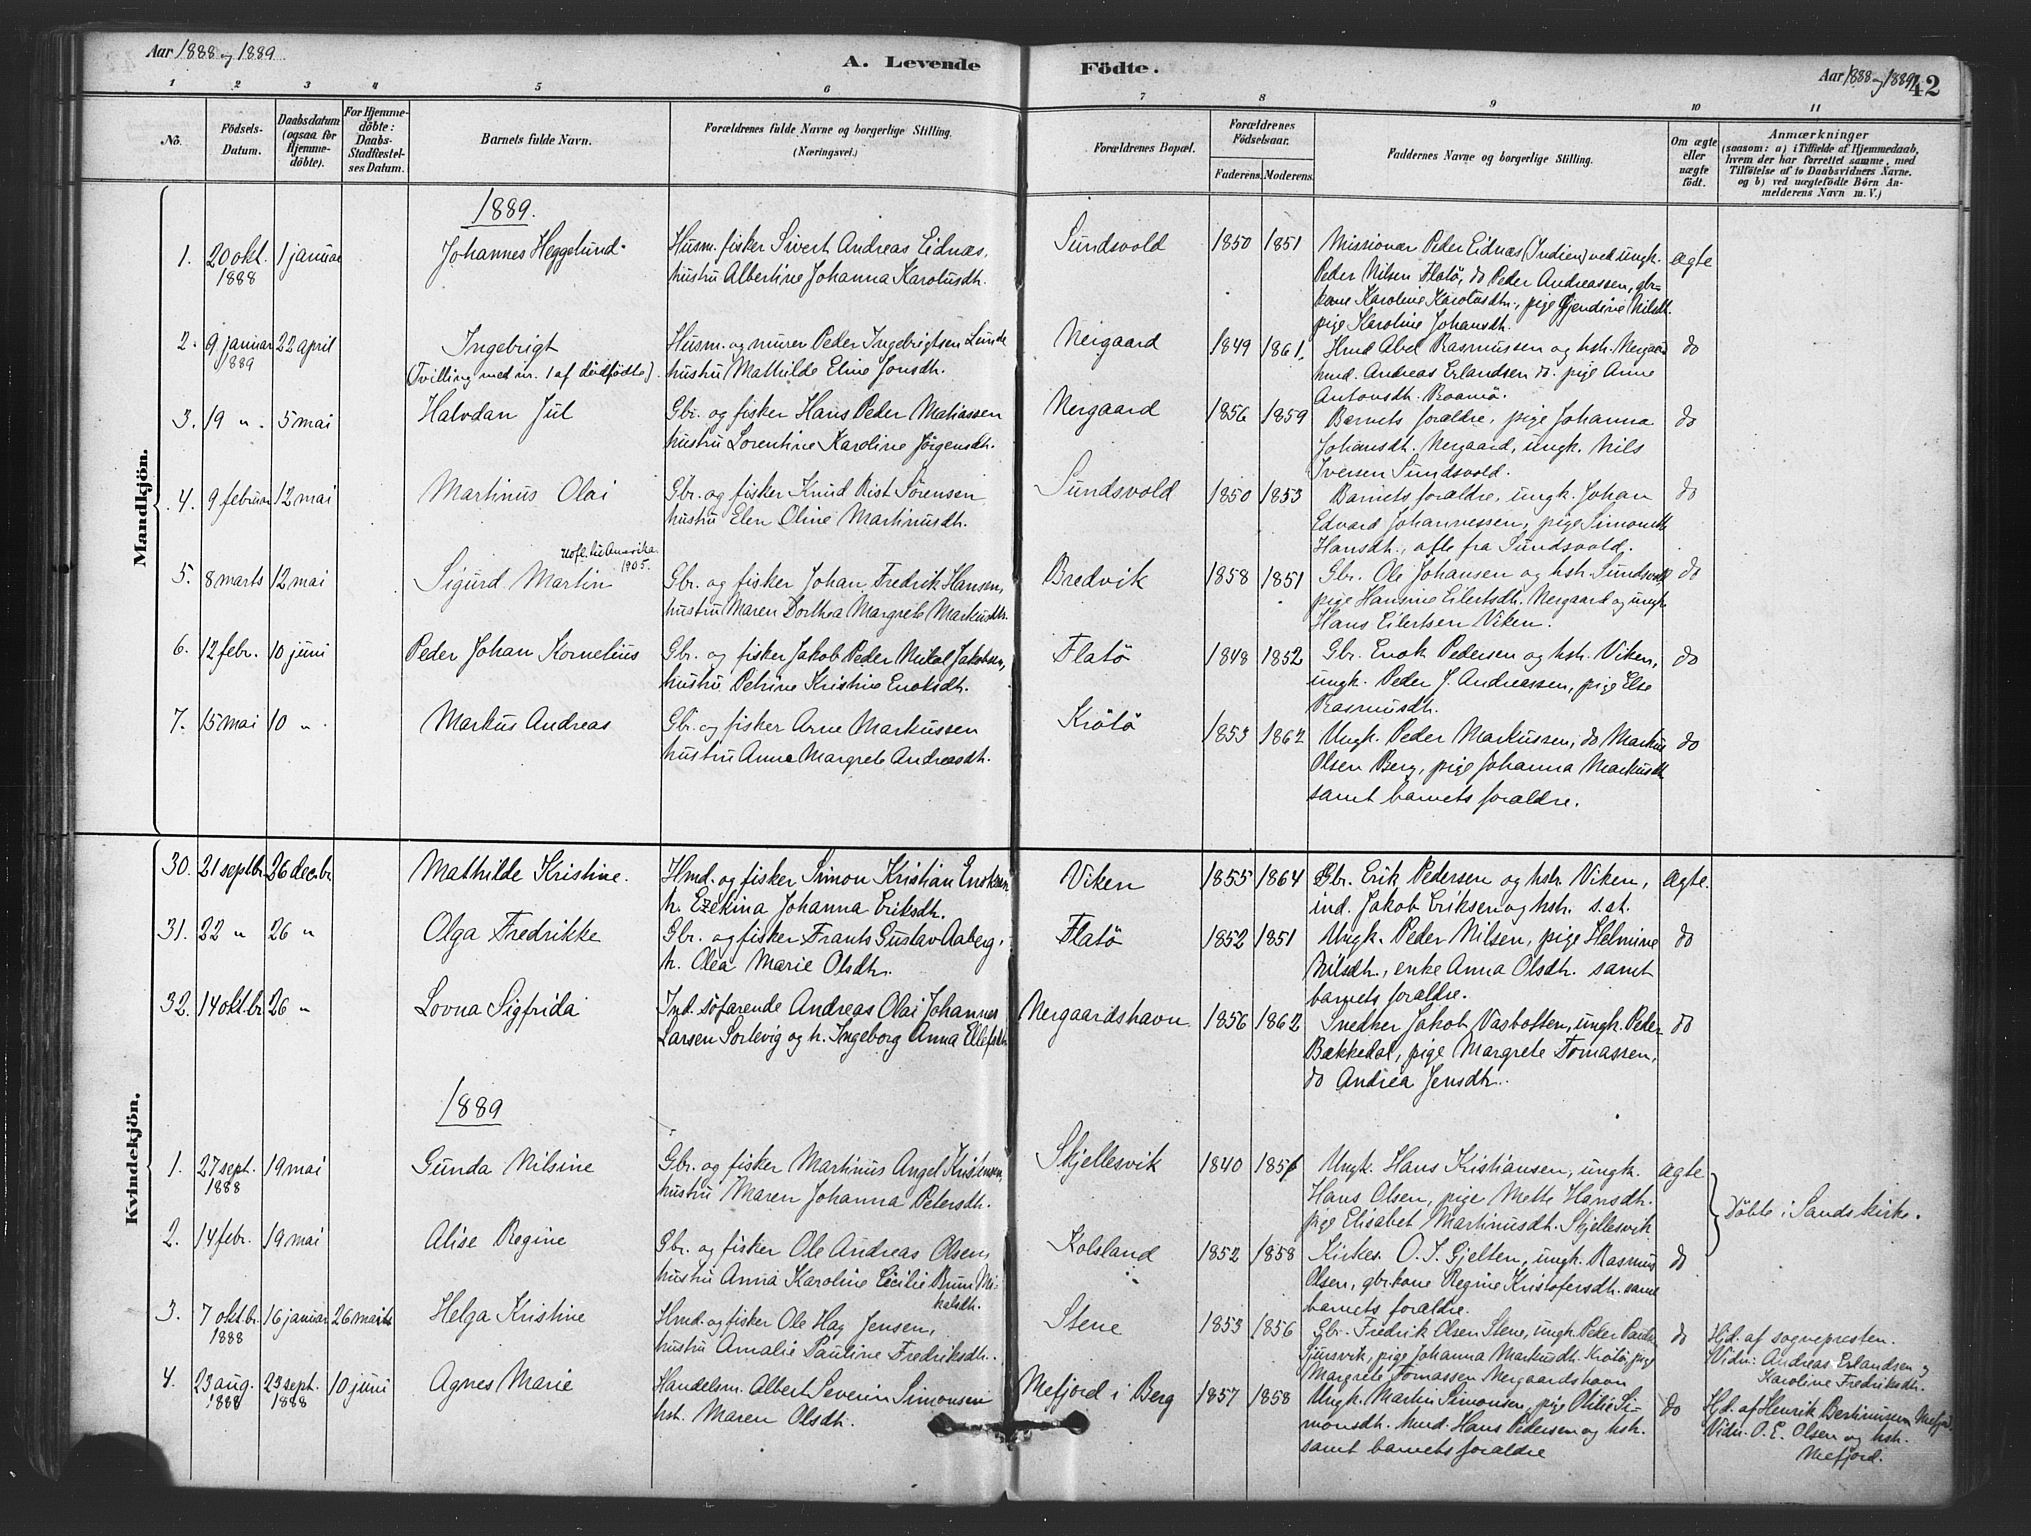 Aar 1888 og 1889
A. Levende Födte.
Aar 1888 og 1889
42
1 2 3 4 5 6 7 8 9 10 11
No.
Födsels-Datum.
Daabsdatum (ogsaa for Hjemme-döbte).
For Hjemme-döbte: Daabs-Stadfæstel-ses Datum.
Barnets fulde Navn.
Forældrenes fulde Navne og borgerlige Stilling.
(Næringsvei.)
Forældrenes Bopæl.
Forældrenes Födselsaar.
Faderens. Moderens.
Faddernes Navne og borgerlige Stilling.
Om ægte eller uægte födt.
Anmærkninger
(saasom: a) i Tilfælde af Hjemmedaab,
hvem der har forrettet samme, med
Tilföielse af to Daabsvidners Navne.
og b) ved uægtefödte Börn An-
melderens Navn m. V.)
Mandkjön.
1889.
1. 20 okt. 1888 1 januar Johannes Heggelund
Husm. fisker Sivert Andreas Eidnæs,
hustru Albertine Johanna Karolusdtr.
Sundsvold 1850 1851
Missionær Peder Eidnæs (Indien) ved ungk.
Peder Nilsen Flatö, do Peder Andreassen, gbr-
kone Karoline Karolusdtr., pige Gjendine Nilsdtr.
pige Karoline Johansdtr.
ægte
2. 9 januar 1889 22 april Ingebrigt
(Tvilling med nr. 1 af dödfödte).
Husm. og murer Peder Ingebrigtsen Lunde
hustru Mathilde Eline Jonsdtr.
Nergaard 1849 1861.
Hmd Abel Rasmussen og hstr. Nergaard
hmd. Andreas Erlandsen do. pige Anne
Antonsdtr. Roamö.
do
3. 19 " . 5 mai Halvdan Jul
Gbr. og fisker Hans Peder Matiassen
hustru Lorentine Karoline Jörgensdtr.
Nergaard 1856 1859
Barnets forældre, pige Johanna
Johansdtr. Nergaard, ungk. Nils
Iversen Sundsvold.
do
4. 9 februar 12 mai Martinus Olai
Gbr. og fisker Knud Rist Sörensen
hustru Elen Oline Martinusdtr.
Sundsvold 1850 1853
Barnets forældre, ungk. Johan
Edvard Johannessen, pige Simonette
Hansdtr., alle fra Sundsvold.
do
5. 8 marts 12 mai Sigurd Martin
Uofl. til Amerika 1905.
Gbr. og fisker Johan Fredrik Hansen,
hustru Maren Dorthea Margrete Markusdtr.
Bredvik 1858 1851
Gbr. Ole Johansen og hstr. Sundsvold
pige Hansine Eilertsdtr. Nergaard og ungk.
Hans Eilertsen Viken.
do
6. 12 febr. 10 juni Peder Johan Kornelius
Gbr. og fisker Jakob Peder Mikal Jakobsen,
hustru Petrine Kristine Enoksdtr.
Flatö 1848 1852
Gbr. Enok Pedersen og hstr. Viken,
ungk. Peder J. Andreassen, pige Else
Rasmusdtr.
do
7. 15 mai 10 " . Markus Andreas
Gbr. og fisker Arne Markussen
hustru Anna Margrete Andreasdtr.
Krötö 1853 1862
Ungk. Peder Markussen, do Markus
Olsen Berg, pige Johanna Markusdtr
samt barnets forældre.
do
Kvindekjön.
30. 21 septbr. 26 decbr Mathilde Kristine.
Hmd. og fisker Simon Kristian Enoksen
h. Ezekina Johanna Eriksdtr.
Viken 1855 1864
Gbr. Erik Pedersen og hstr. Viken,
ind. Jakob Eriksen og hstr. s. st.
ægte.
31. 22 " 26 " Olga Fredrikke
Gbr. og fisker Frants Gustav Aaberg,
h. Olea Marie Olsdtr.
Flatö 1852 1851
Ungk. Peder Nilsen, pige Helmine
Nilsdtr., enke Anna Olsdtr. samt
barnets forældre.
do
32. 14 oktbr 26 " Lovna Sigfrida
Ind. söfarende Andreas Olai Johannes
Larsen Sorlevig og h. Ingeborg Anna Ellefsdtr.
Nergaardshavn 1856 1862
Snedker Jakob Vasbotten, ungk. Peder
Bækkedal, pige Margrete Tomassen,
do Andrea Jensdtr.
do
1889
1. 27 sept. 1888 19 mai Gunda Nilsine
Gbr. og fisker Martinus Angel Kristensen,
hustru Maren Johanna Petersdtr.
Skjellesvik 1840 1851
Ungk. Hans Kristiansen, ungk.
Hans Olsen, pige Mette Hansdtr.
pige Elisabet Martinusdtr. Skjellesvik
ægte
Döbte i Sands kirke.
2. 14 febr. 19 mai Alise Regine
Gbr. og fisker Ole Andreas Olsen,
hustru Anna Karoline Cecilie Brun Mi-
kalsdtr.
Kolsland 1852 1858
Kirkes. O. J. Gjelten, ungk. Rasmus
Olsen, gbr.kone Regine Kristofersdtr. samt
barnets forældre.
do
3. 7 oktbr 1888 16 januar 26 marts Helga Kristine
Hmd. og fisker Ole Hag Jensen,
hustru Amalie Pauline Fredriksdtr.
Stene 1853 1856
Gbr. Fredrik Olsen Stene, ungk. Peder
Sjursvik, pige Johanna Markusdtr. Krötö, pige
Margrete Tomassen Nergaardshavn
do
Hjd. af sognepresten.
Vidn: Andreas Erlandsen og
Karoline Fredriksdtr.
4. 23 aug. 1888 23 sept. 1888 10 juni Agnes Marie
Handelsm. Albert Severin Simonsen
hstr. Maren Olsdtr.
Mefjord i Berg 1857 1858
Ungk. Martin Simonsen, pige Otilie Si-
monsdtr. hmd. Hans Pedersen og hstr.
samt barnets forældre
do
Hjd. af Henrik Bertinusen Mefjord.
Vidn. O. E. Olsen og hstr.
Mefjord.